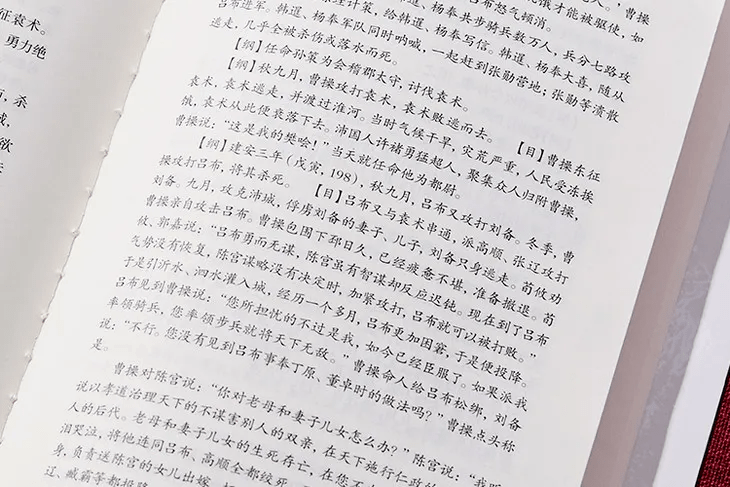 征袁术。
勇力绝
曹操
吕布怒气顿消。
给韩暹、杨奉写信。韩暹、杨奉大喜,随从
吕布进军。韩暹、杨奉军队同时呐喊,一起赶到张勋营地;张勋等溃散
逃走,几乎全被杀伤或落水而死。
【纲】任命孙策为会稽郡太守,讨伐袁术。
【纲】秋九月,曹操攻打袁术,袁术败逃而去。【目】曹操东征
袁术,袁术逃走,并渡过淮河。当时气候干旱,灾荒严重,人民受冻挨
饿,袁术从此便衰落下去。沛国人许褚勇猛超人,聚集众人归附曹操,
曹操说:“这是我的樊哙!”当天就任命他为都尉。
【纲】建安三年(戊寅,198),秋九月,吕布又攻打刘备。冬季,曹
操攻打吕布,将其杀死。【目】吕布又与袁术串通,派高顺、张辽攻打
刘备。九月,攻克沛城,俘虏刘备的妻子、儿子,刘备只身逃走。
曹操亲自攻击吕布。曹操包围下邳日久,已经疲惫不堪,准备撤退。荀
攸、郭嘉说:“吕布勇而无谋,陈宫虽有智谋却反应迟钝。现在到了吕布
气势没有恢复,陈宫谋略没有决定时,加紧攻打,吕布就可以被打败。”
于是引沂水、泗水灌入城,经历一个多月,吕布更加困窘,于是便投降。
吕布见到曹操说:“您所担忧的不过是我,如今已经臣服了。如果派我
率领骑兵,您率领步兵就将天下无敌。”曹操命人给吕布松绑,刘备
说:“不行。您没有见到吕布事奉丁原、董卓时的做法吗?”曹操点头称
是。
曹操对陈宫说:“你对老母和妻子儿女怎么办?”陈宫说:“我听
说以孝道治理天下的不谋害别人的双亲,在天下施行仁政的
人的后代。老母和妻子儿女的生死存亡,在您不
泪哭泣,将他连同吕布、高顺全都绞死
身,负责送陈宫的女儿出嫁
辽、臧霸等都投降